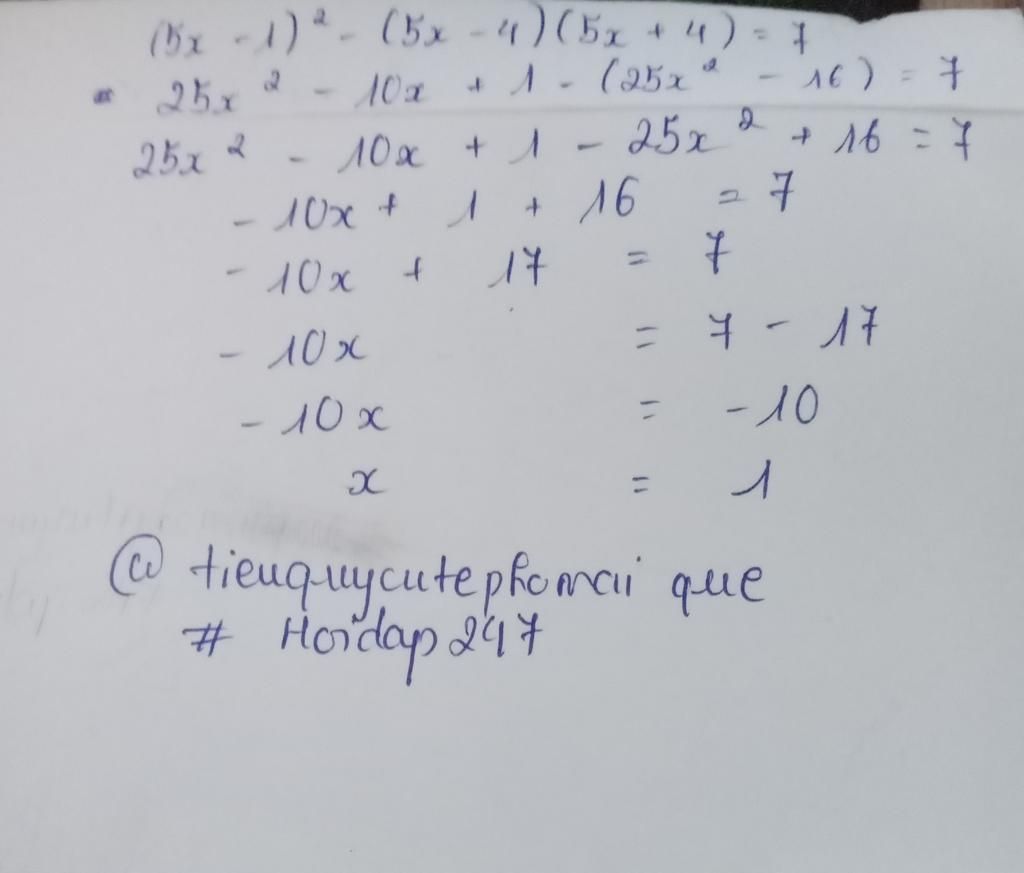 (5x - 1)² - (5x - 4)(5x + 4) = 7
25x² - 10x + 1 - (25x² - 16) = 7
25x² - 10x + 1 - 25x² + 16 = 7
- 10x + 1 + 16 = 7
- 10x + 17 = 7
- 10x = 7 - 17
- 10x = -10
x = 1
@ tieuquycutephomai que
# Hoidap247